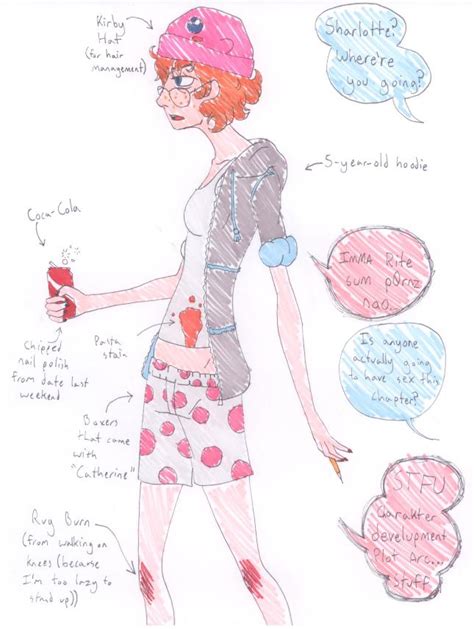 Kirby
Hat
(for hair
management)
Sharlotte?
Where're
you going?
5-year-old hoodie
Coca-Cola
IMMA Rite
sum p0rnz
nao.
Chipped
nail polish
from date last
weekend
Pasta
stain
Is anyone
actually going
to have sex this
chapter?
Boxers
that came
with
"Catherine"
STFU
Carakter
development
Plot Arc...
Stuff
Rug Burn
(from walking on
knees (because
I'm too lazy to
stand up))